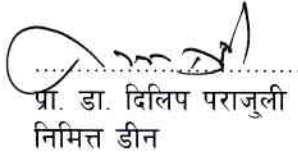 प्रा. डा. दिलिप पराजुली
निमित्त डीन